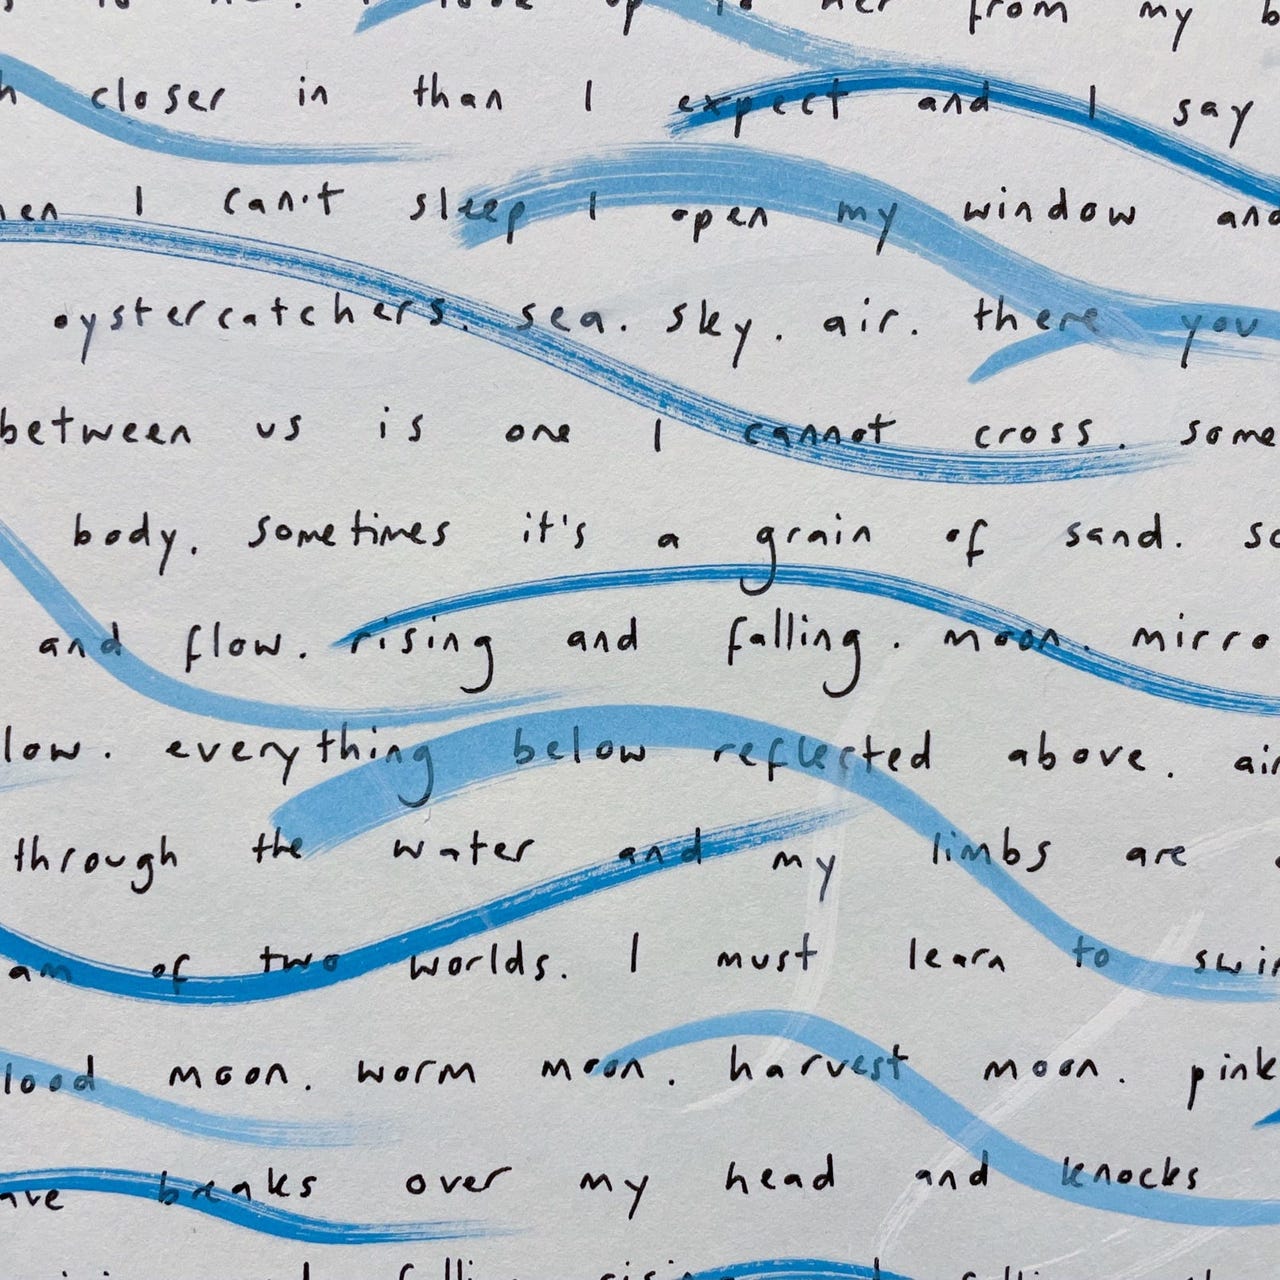 to her. I look up to her from my b
h closer in than I expect and I say
hen I can't sleep I open my window and
oystercatchers. sea. sky. air. there you
between us is one I cannot cross. some
body. sometimes it's a grain of sand. so
and flow. rising and falling. moon. mirro
low. everything below reflected above. air
through the water and my limbs are
am of two worlds. I must learn to swim
lood moon. worm moon. harvest moon. pink
ave breaks over my head and knocks
falling rising